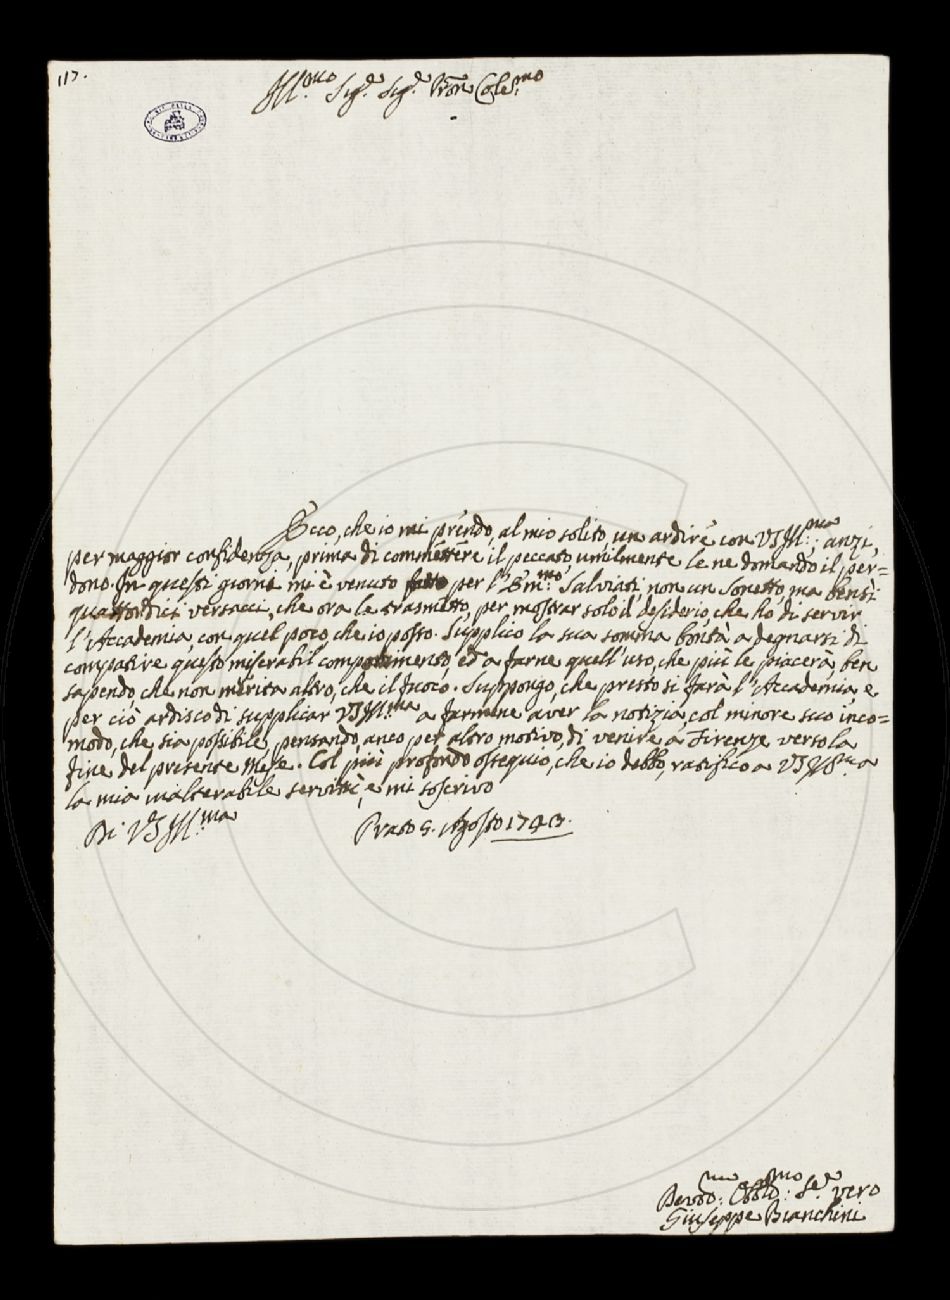 117.
Ill:mo Sig.e Sig.e Pron Cole:mo
Ecco, che io mi prendo, al mio solito, un ardire con VS Ill:ma; anzi,
per maggior confidenza, prima di commettere il peccato, umilmente le ne domando il per=
dono. In questi giorni mi è venuto fatto per l'Em:mo Salviati, non un Sonetto, ma bensì
quattordici versacci, che ora le trasmetto, per mostrar solo il desiderio, che ho di servir
l'Accademia, con quel poco, che io posso. Supplico la sua somma bontà a degnarsi di
compatire questo miserabil componimento, ed a farne quell'uso, che più le piacerà, ben
sapendo, che non merita altro, che il fuoco. Suppongo, che presto si farà l'Accademia e
per ciò ardisco di supplicar VS Ill:ma a farmene aver la notizia, col minore suo inco=
modo, che sia possibile, pensando, anco per altro motivo, di venire a Firenze verso la
fine del presente Mese. Col più profondo ossequio, che io debbo, ratifico a VS Ill:ma
la mia inalterabile servitù, e mi soscrivo
Di VS Ill:ma
Prato 5. Agosto 1743.
Devo:mo Obblo:mo Se.e vero
Giuseppe Bianchini